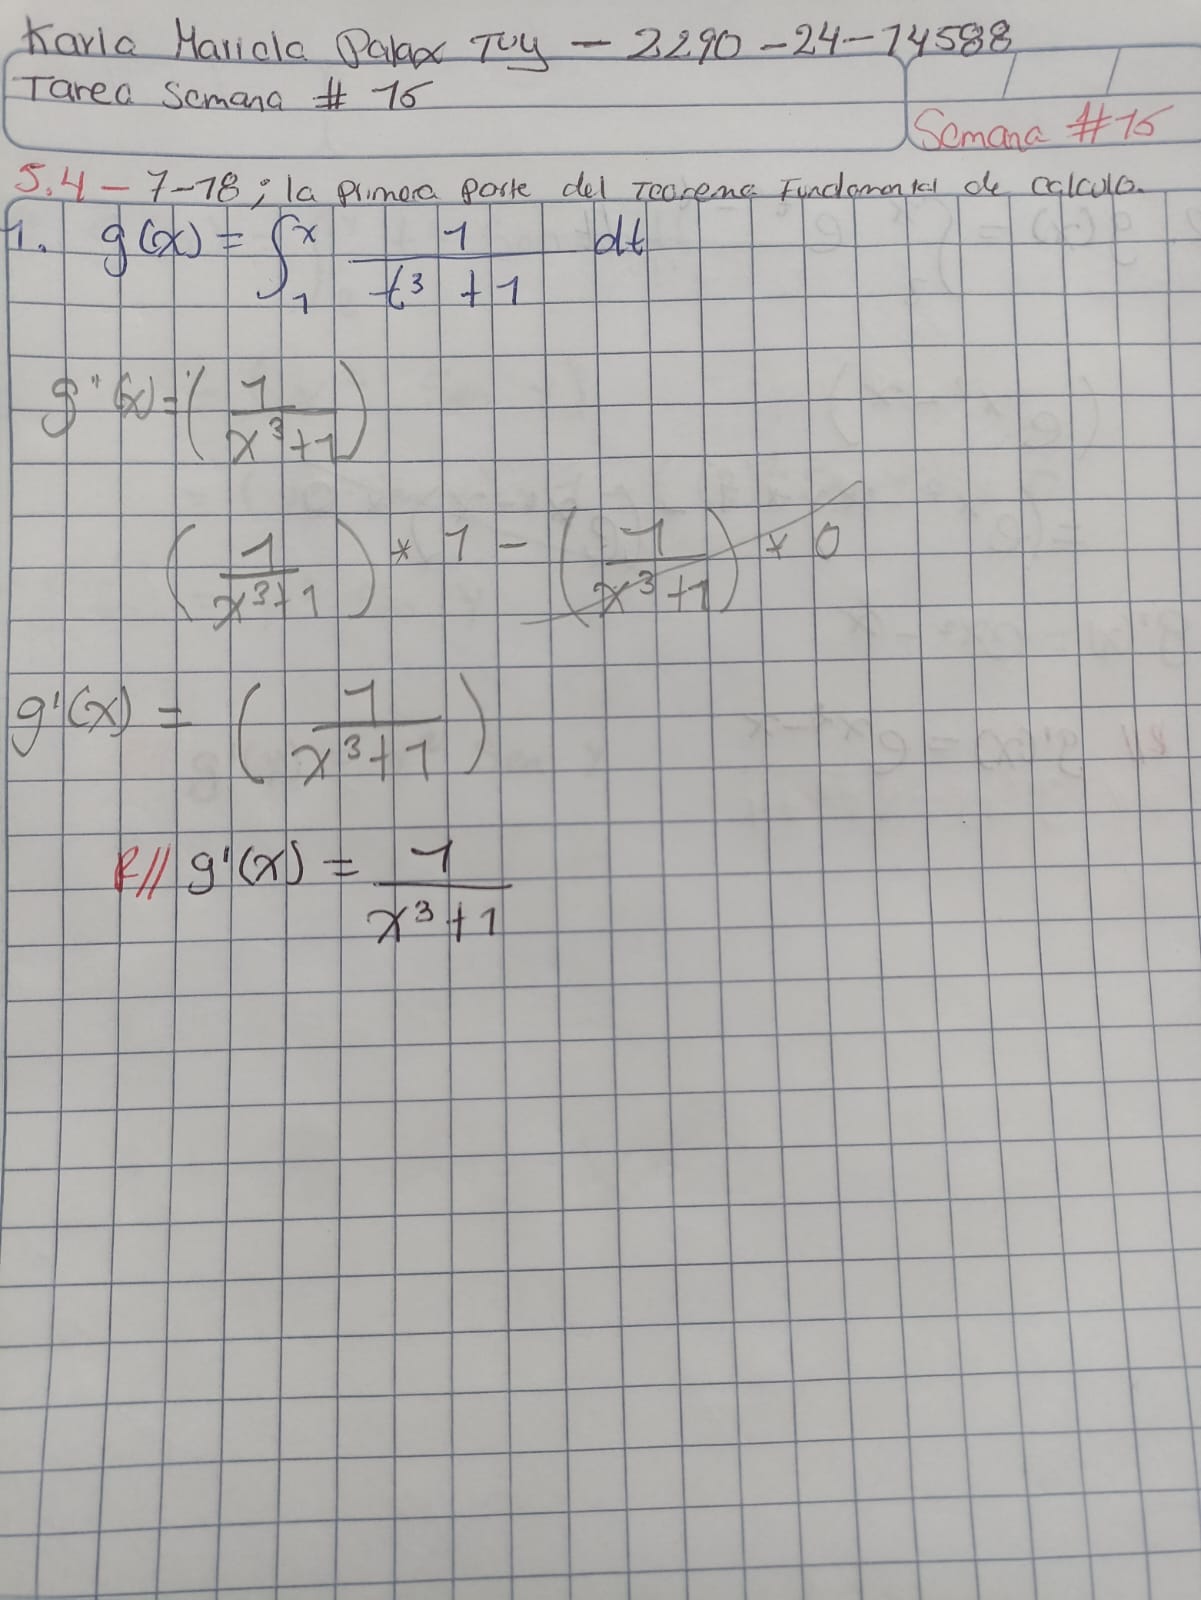 Karla Mariela Palax Tuy - 2290-24-14588
Tarea Semana # 15
Semana #15
5.4 - 7-18; la primera parte del Teorema Fundamental de calculo.
1. g(x) = ∫₁ˣ 1/(t³ + 1) dt
g''(x) = (1/(x³+1))
(1/(x³+1)) * 1 - (1/(x³+1)) * 0
g'(x) = (1/(x³+1))
R// g'(x) = 1/(x³+1)